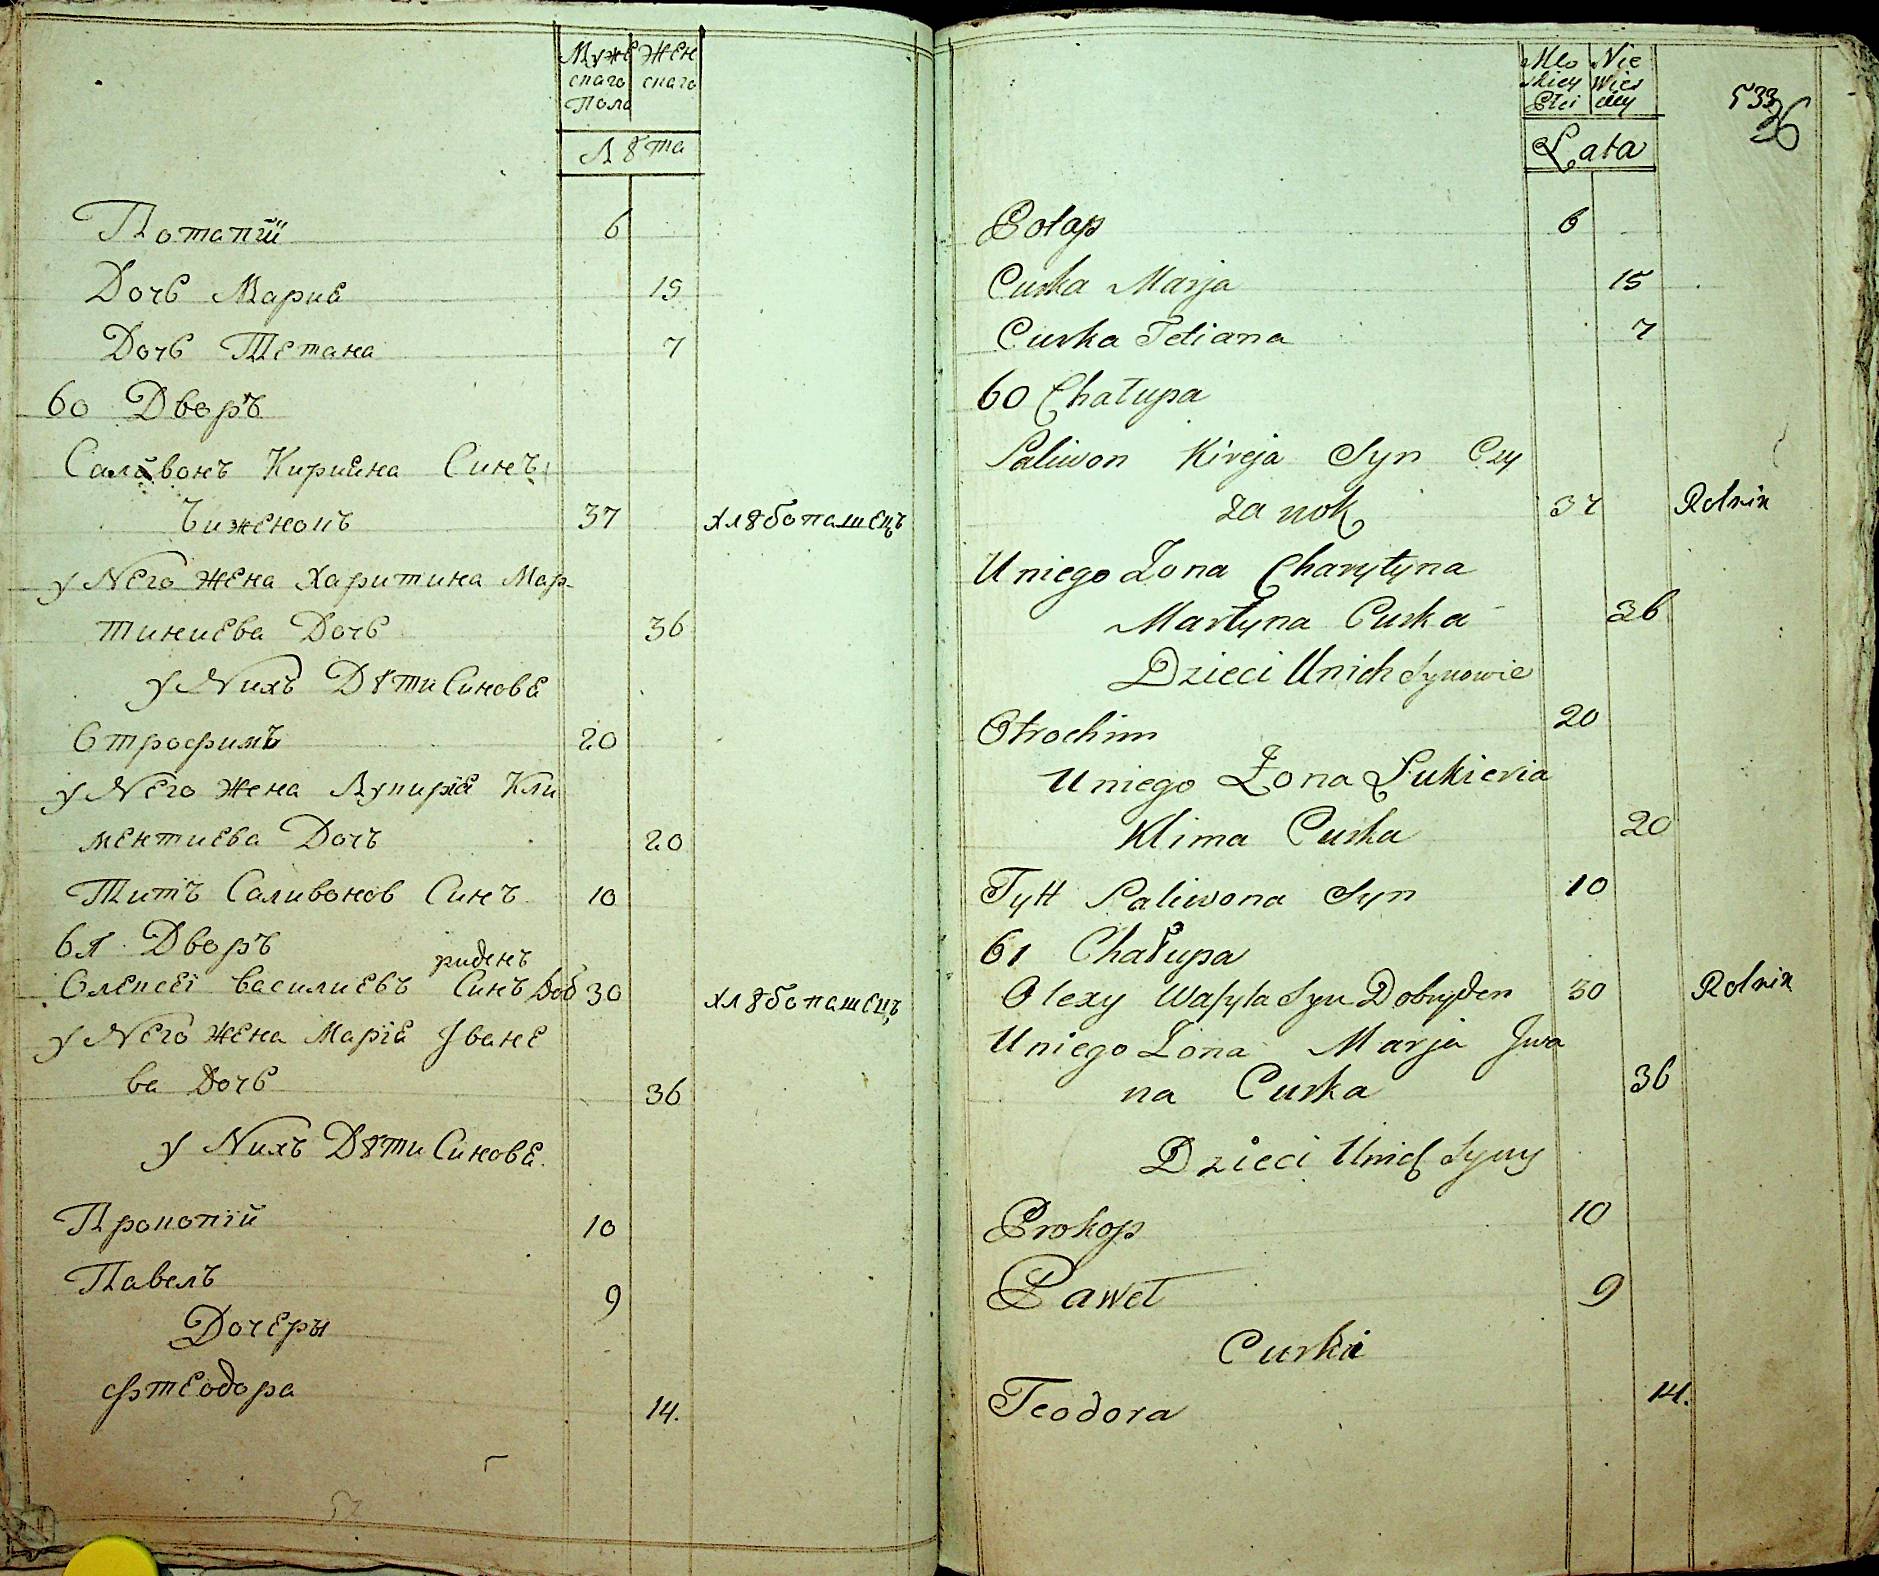 Муже Жен
скаго скаго
Пола
Лѣта
Потапій 6
Дочь Марие 15
Дочь Тетана 7
60 Дворъ
Саливонъ Кирийна Синъ
Чиженокъ 37 хлѣбопашецъ
у Него жена Харитина Мар
тиниева Дочь 36
у Нихъ Дѣти Синове
Отрофимъ 20
у Него жена Лукиріе Кли
ментиева Дочъ 20
Титъ Саливонов Синъ 10
61 Дворъ
риденъ
Олексеі Василиевъ Синъ Доб 30 хлѣбопашецъ
у Него жена Маріе Іване
ва Дочь 36
у Нихъ Дѣти Синове.
Прокопій 10
Павелъ 9
Дочеры
Фтеодора 14.
Mę Nie
skiey wies
Płci ciey
Lata
533
36
Potap 6
Curka Marja 15
Curka Tetiana 7
60 Chałupa
Saliwon Kireja Syn Czy
za nok 37 Rolnik
U niego Żona Charytyna
Martyna Curka 36
Dzieci Unich Synowie
Otrochim 20
U niego Żona Łukieria
Klima Curka 20
Tytt Saliwona Syn 10
61 Chałupa
Olexy Wasyla Syn Dobryden 30 Rolnik
U niego Żona Marja Jwa
na Curka 36
Dzieci Unich Syny
Prokop 10
Paweł 9
Curki
Teodora 14.